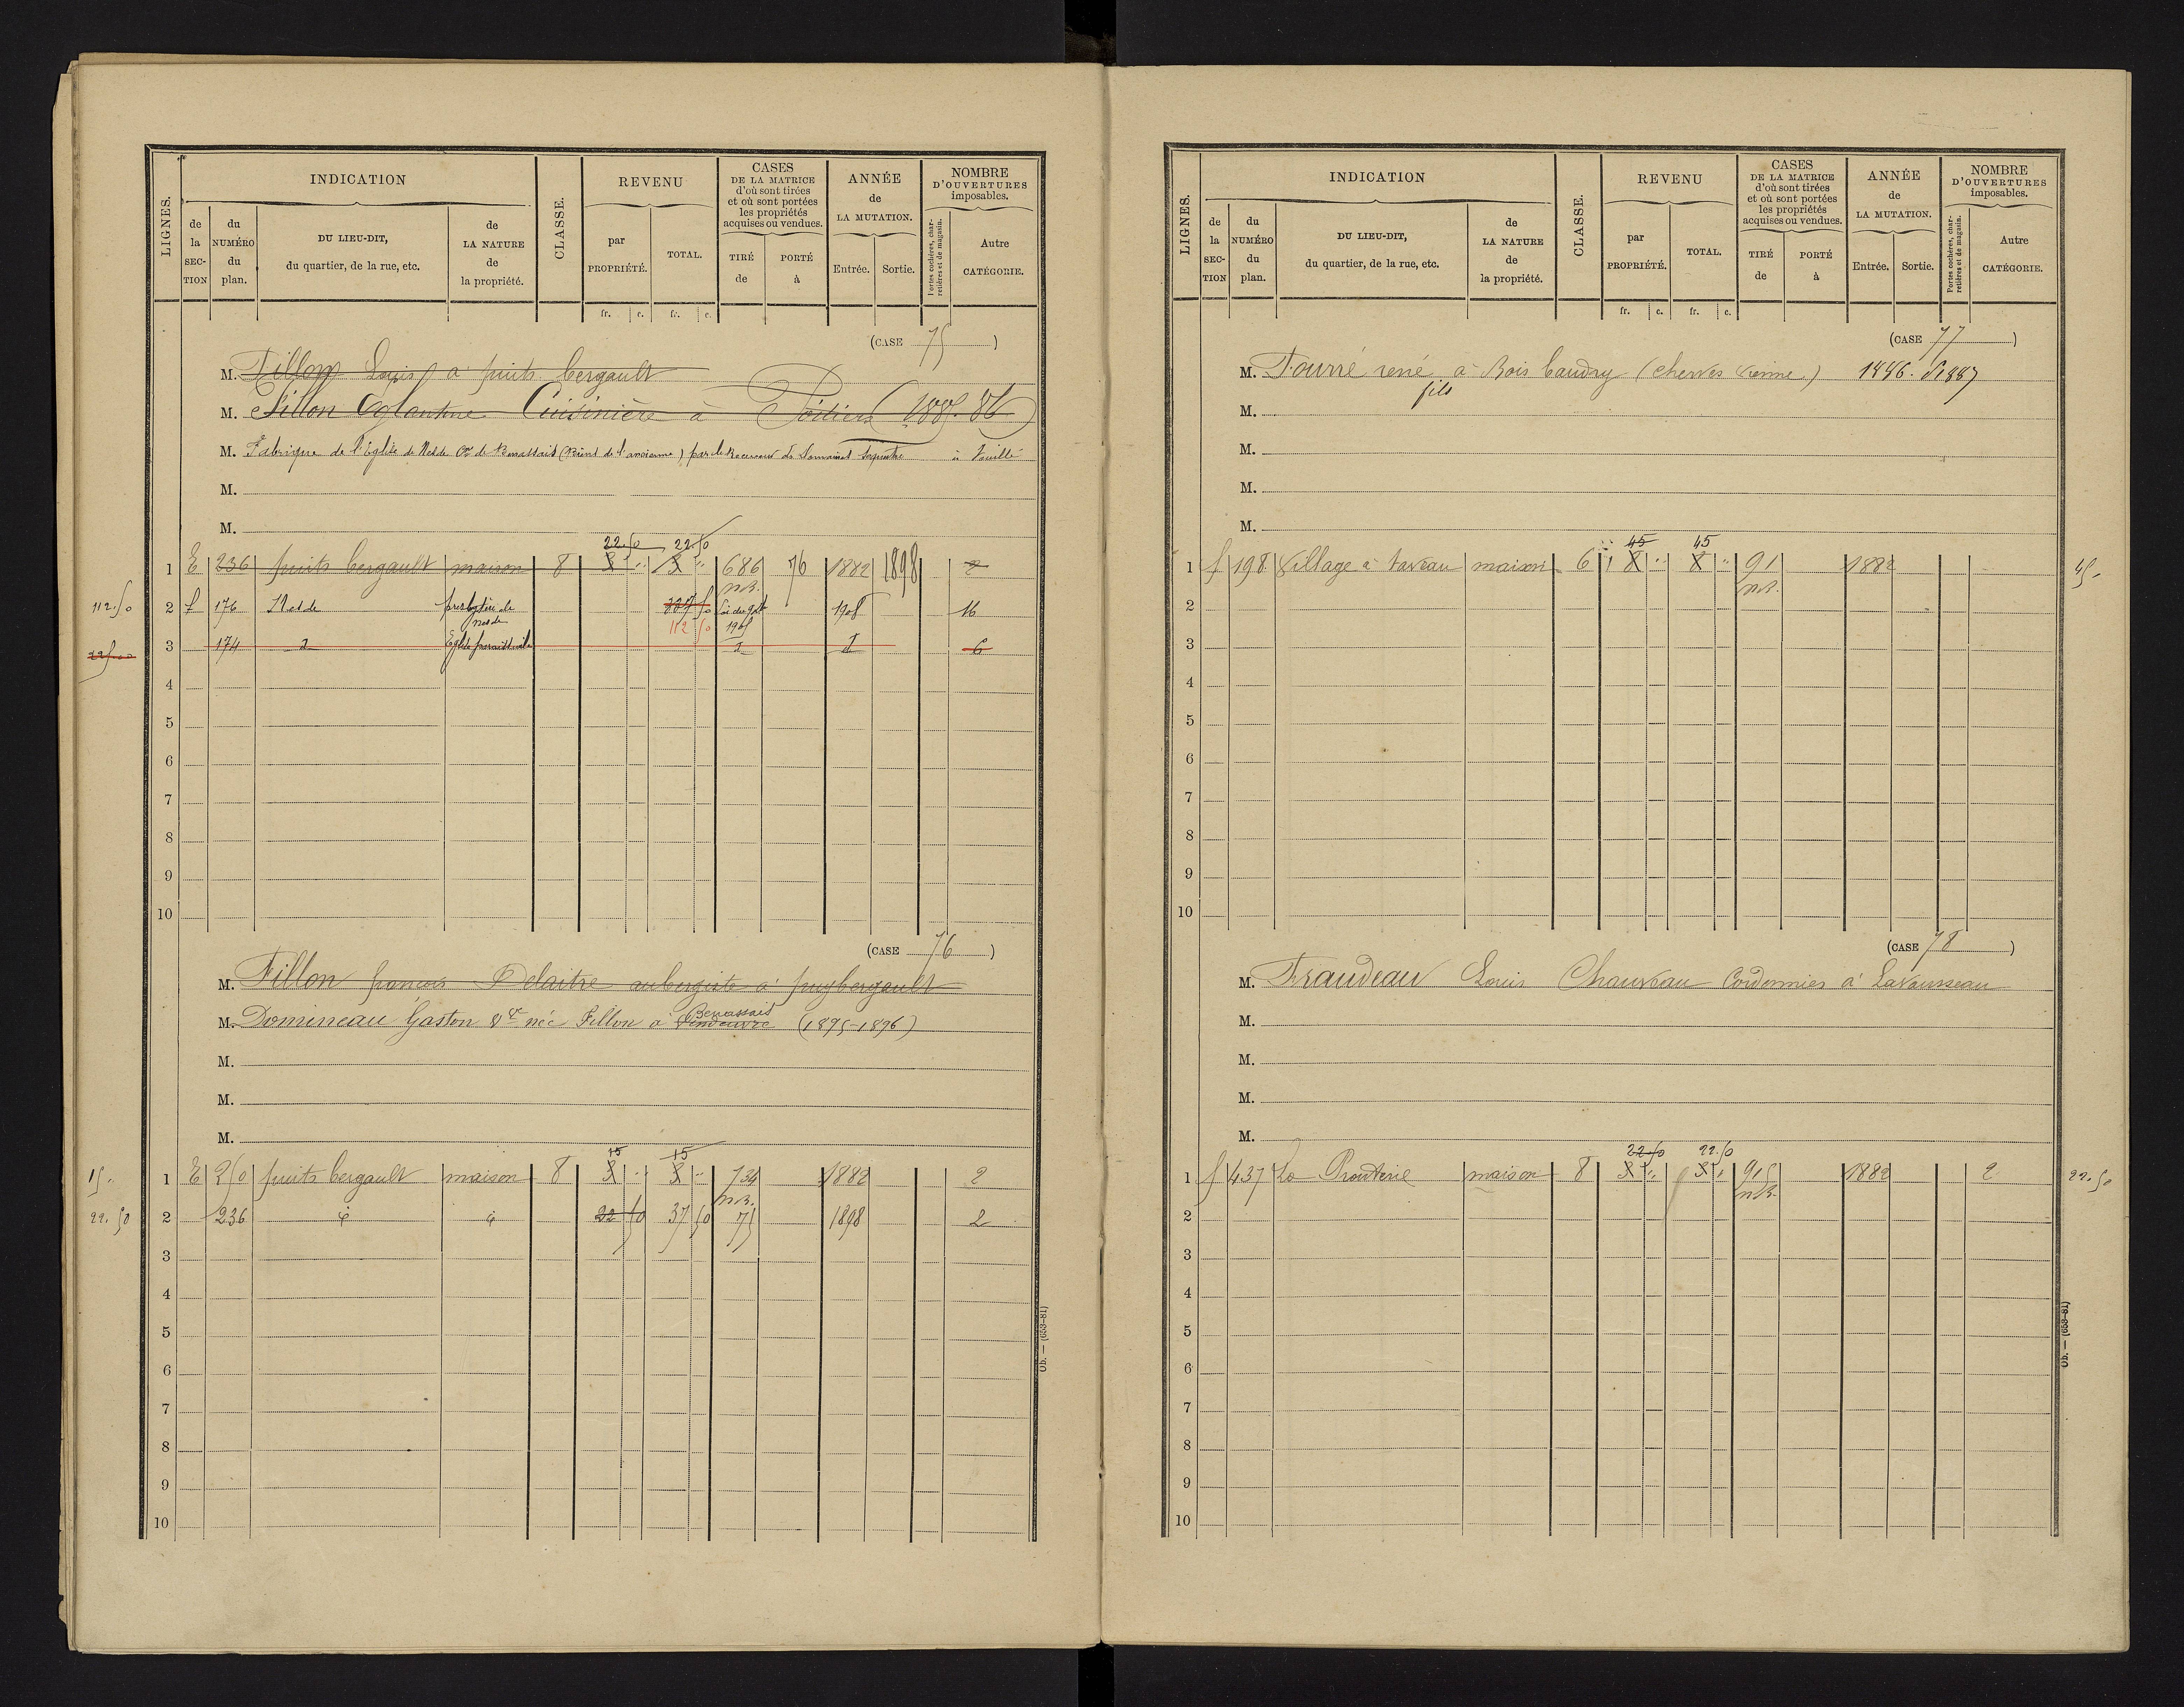 LIGNES.
INDICATION
CLASSE.
REVENU
CASES
DE LA MATRICE
d'où sont tirées
et où sont portées
les propriétés
acquises ou vendues.
ANNÉE
de
LA MUTATION.
NOMBRE
D'OUVERTURES
imposables.
de la SECTION
du NUMÉRO du plan.
DU LIEU-DIT,
du quartier, de la rue, etc.
de LA NATURE de la propriété.
par PROPRIÉTÉ.
TOTAL.
TIRÉ de
PORTÉ à
Entrée.
Sortie.
Portes cochères, charretières et de magasin.
Autre CATÉGORIE.
fr. c. fr. c.
(CASE 75)
M. Fillon Louis à puits bergault
M. Fillon Eglantine Cuisinière à Poitiers (1885-86)
M. Fabrique de l'Eglise de Nesde Cne de Benassais (Biens de l'ancienne) par le Receveur des Domaines à Vouillé
M.
M.
22.50 22.50
1 E 236 puits bergault maison 8 3 " 3 " 686 76 1882 1898 2
n.B.
112.50 2 f 176 Nesde presbytère de Nesde 50 Loi du 9 1908 16
112 50 1905
3 174 d Eglise paroissiale d d 6
4
5
6
7
8
9
10
(CASE 76)
M. Fillon francois Delaitre aubergiste à puybergault
M. Domineau Gaston Vve née Fillon à Vendeuvre Benassais (1895-1896)
M.
M.
M.
15 15
15 " 1 E 250 puits bergault maison 8 3 " 3 " 734 1882 2
n.B.
22.50 2 236 d d 22 50 37 50 75 1898 2
3
4
5
6
7
8
9
10
Ob. — (653-81)
LIGNES.
INDICATION
CLASSE.
REVENU
CASES
DE LA MATRICE
d'où sont tirées
et où sont portées
les propriétés
acquises ou vendues.
ANNÉE
de
LA MUTATION.
NOMBRE
D'OUVERTURES
imposables.
de la SECTION
du NUMÉRO du plan.
DU LIEU-DIT,
du quartier, de la rue, etc.
de LA NATURE de la propriété.
par PROPRIÉTÉ.
TOTAL.
TIRÉ de
PORTÉ à
Entrée.
Sortie.
Portes cochères, charretières et de magasin.
Autre CATÉGORIE.
fr. c. fr. c.
(CASE 77)
M. Fourré rené à Bois baudry (cherves Vienne) 1886. 1887
fils
M.
M.
M.
M.
45 45
1 f 198 Village à taveau maison 6 8 " 8 " 91 1882 45 "
n.B.
2
3
4
5
6
7
8
9
10
(CASE 78)
M. Fraudeau Louis Chauveau Cordonnier à Lavausseau
M.
M.
M.
M.
22.50 22.50
1 f 437 La Prouterie maison 8 3 " 3 " 915 1882 2 22.50
n.B.
2
3
4
5
6
7
8
9
10
Ob. — (653-81)